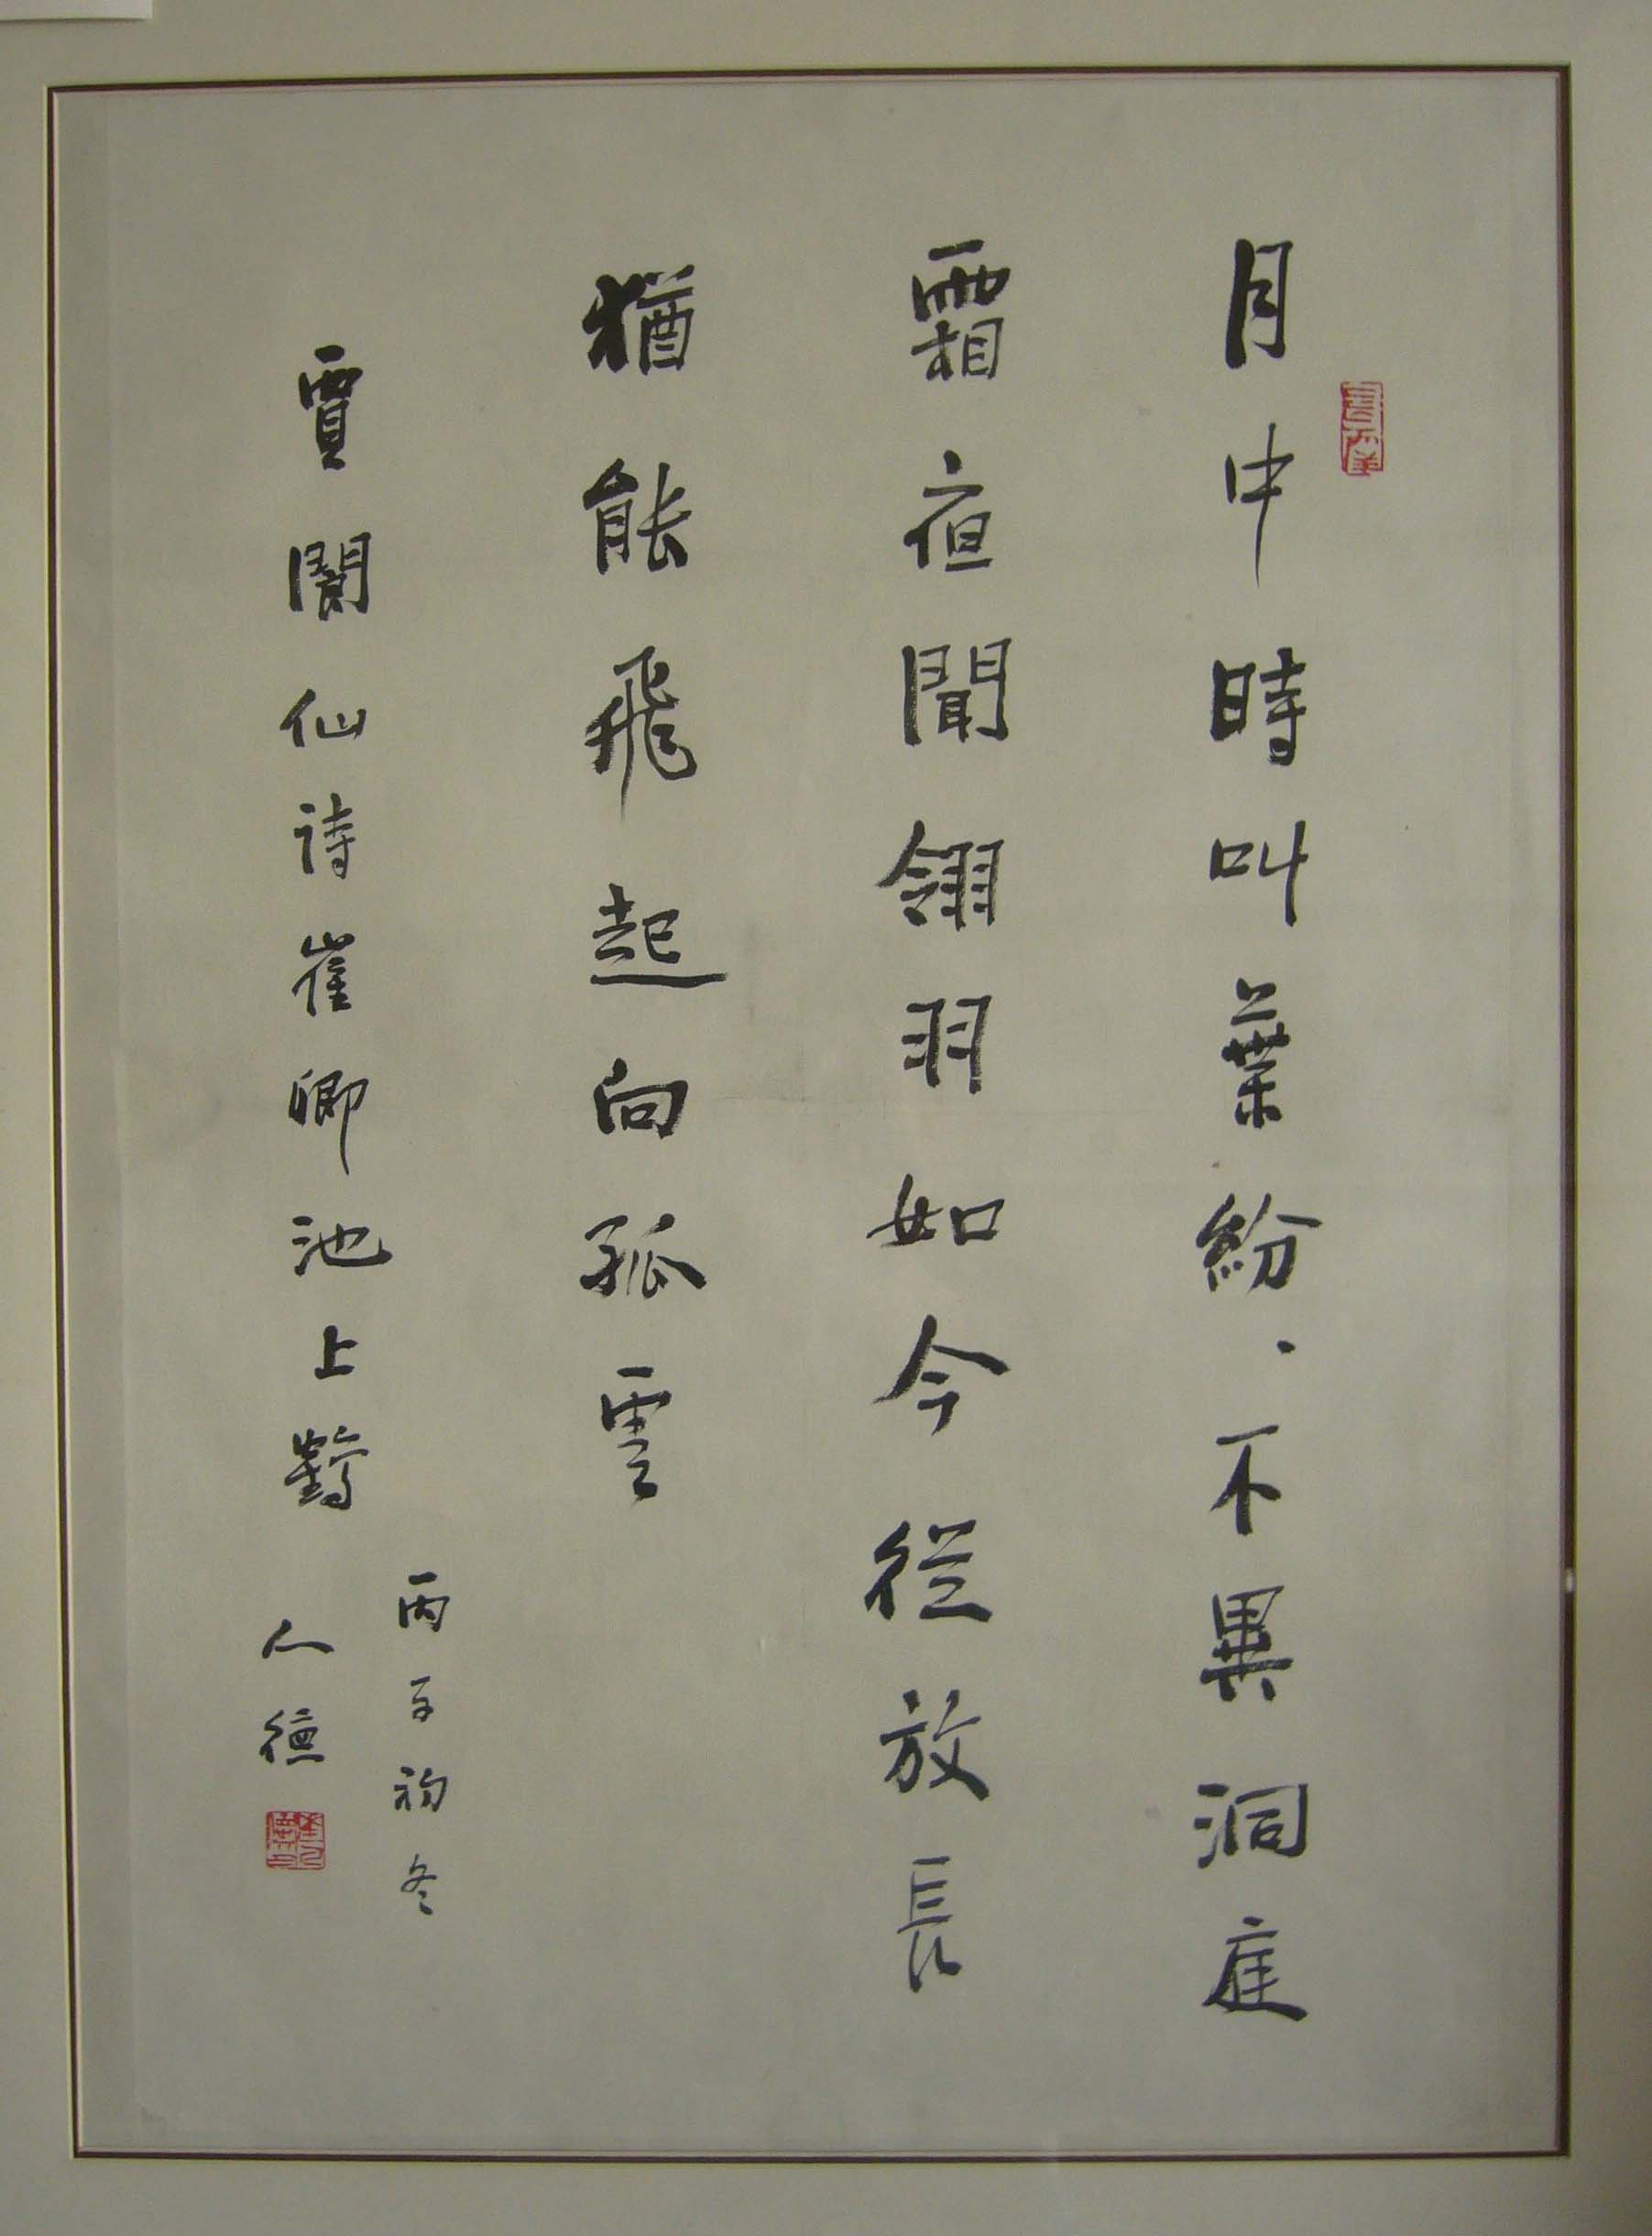 月中時叫葉紛、不異洞庭
霜夜聞翎羽如今從放長
猶能飛起向孤雲
賈閬仙詩崔卿池上鶴
丙子初冬
人德